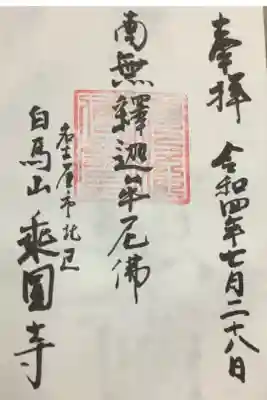 奉拝
令和四年七月二十八日
南無釋迦牟尼佛
名古屋市
白馬山 乘圓寺